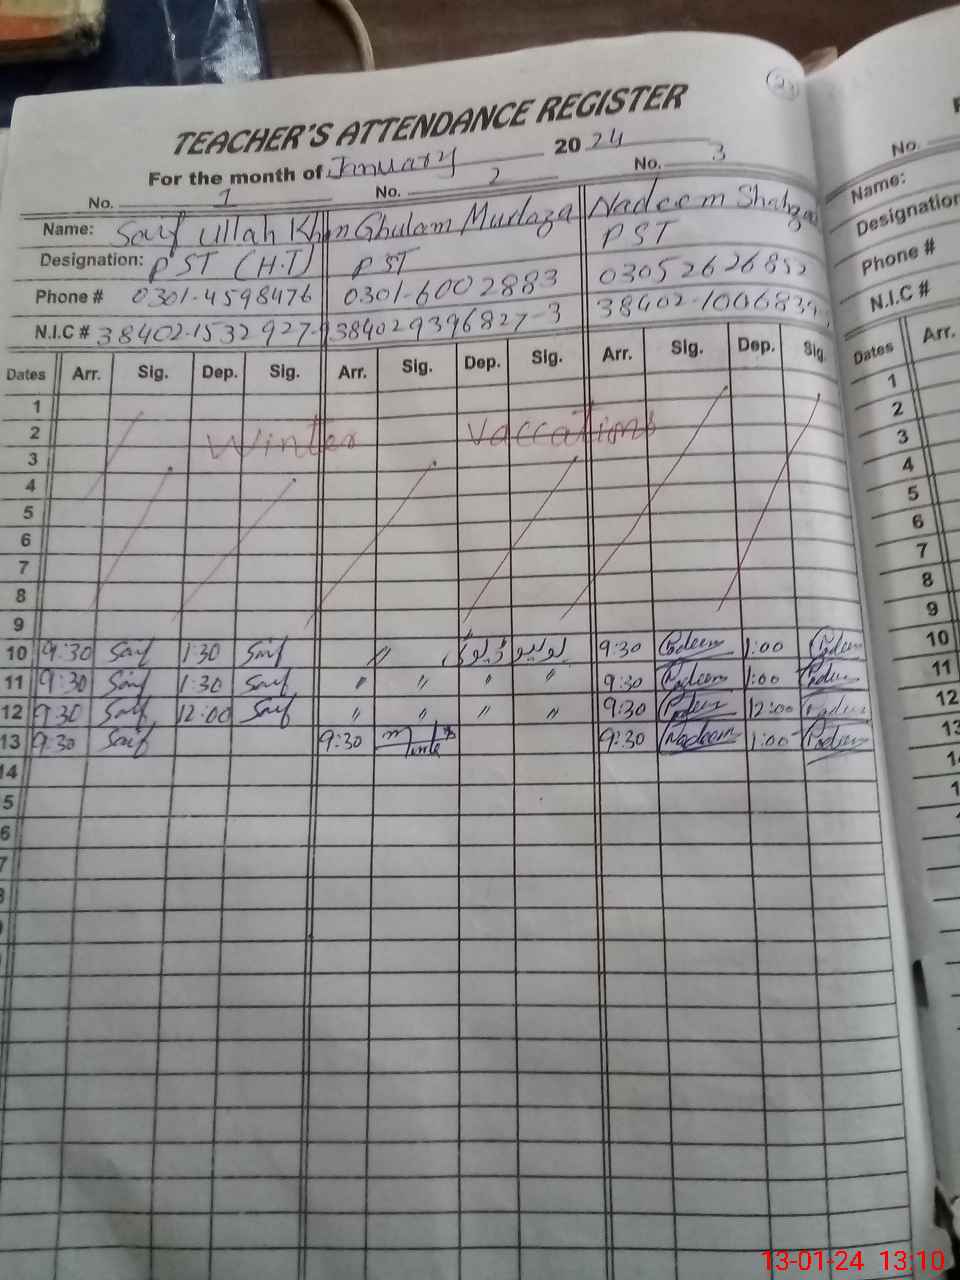 23
TEACHER'S ATTENDANCE REGISTER
For the month of January 2024
No. 1 No. 2 No. 3
Name: Saif ullah Khan Ghulam Murtaza Nadeem Shahza
Designation: PST (H.T) PST PST
Phone # 0301-4598476 0301-6002883 03052626852
N.I.C # 38402-1532927-9 384029396827-3 38402-1006839
Dates Arr. Sig. Dep. Sig. Arr. Sig. Dep. Sig. Arr. Sig. Dep. Sig.
1
2 Winter Vaccations
3
4
5
6
7
8
9
10 9:30 Saif 1:30 Saif " پولیو ڈیوٹی 9:30 Nadeem 1:00 Nadeem
11 9:30 Saif 1:30 Saif " " " " 9:30 Nadeem 1:00 Nadeem
12 9:30 Saif 12:00 Saif " " " " 9:30 Nadeem 12:00 Nadeem
13 9:30 Saif 9:30 9:30 Nadeem 1:00 Nadeem
14
5
6
7
8
No.
Name:
Designation
Phone #
N.I.C #
Dates Arr.
1
2
3
4
5
6
7
8
9
10
11
12
13
1
1
13-01-24 13:10